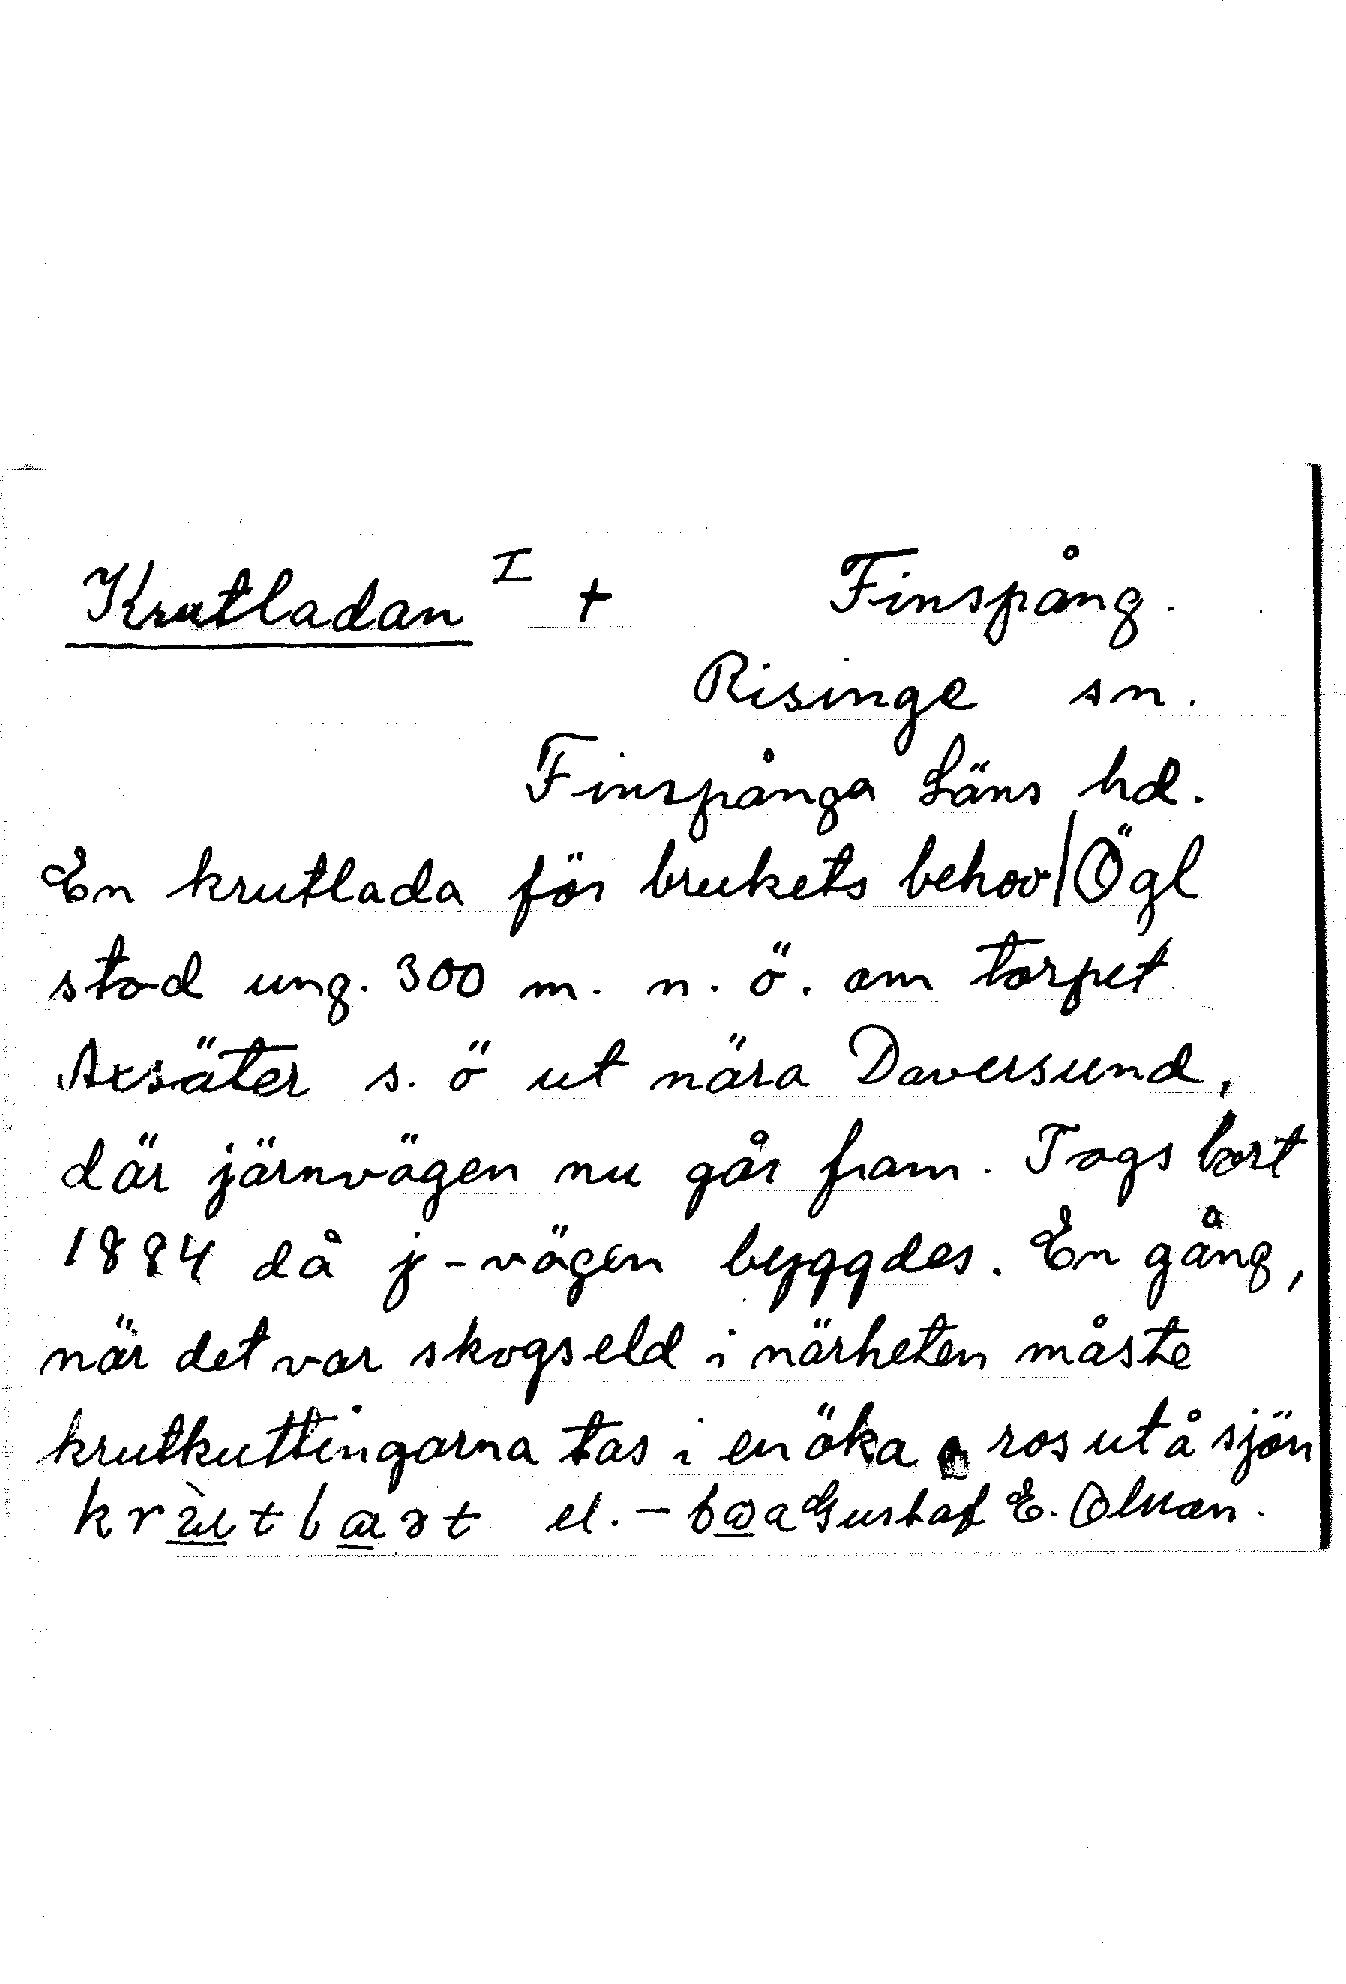 Krutladan I + Finspång.
Risinge sn.
Finspånga Läns hd.
En krutlada för brukets behov / Ögl
stod ung. 300 m. n. ö. om torpet
Axsäter s. ö ut nära Daversund,
där järnvägen nu går fram. Togs bort
1884 då j-vägen byggdes. En gång,
när det var skogseld i närheten måste
krutkuttingarna tas i en öka o ros ut å sjön
el. Gustaf E.